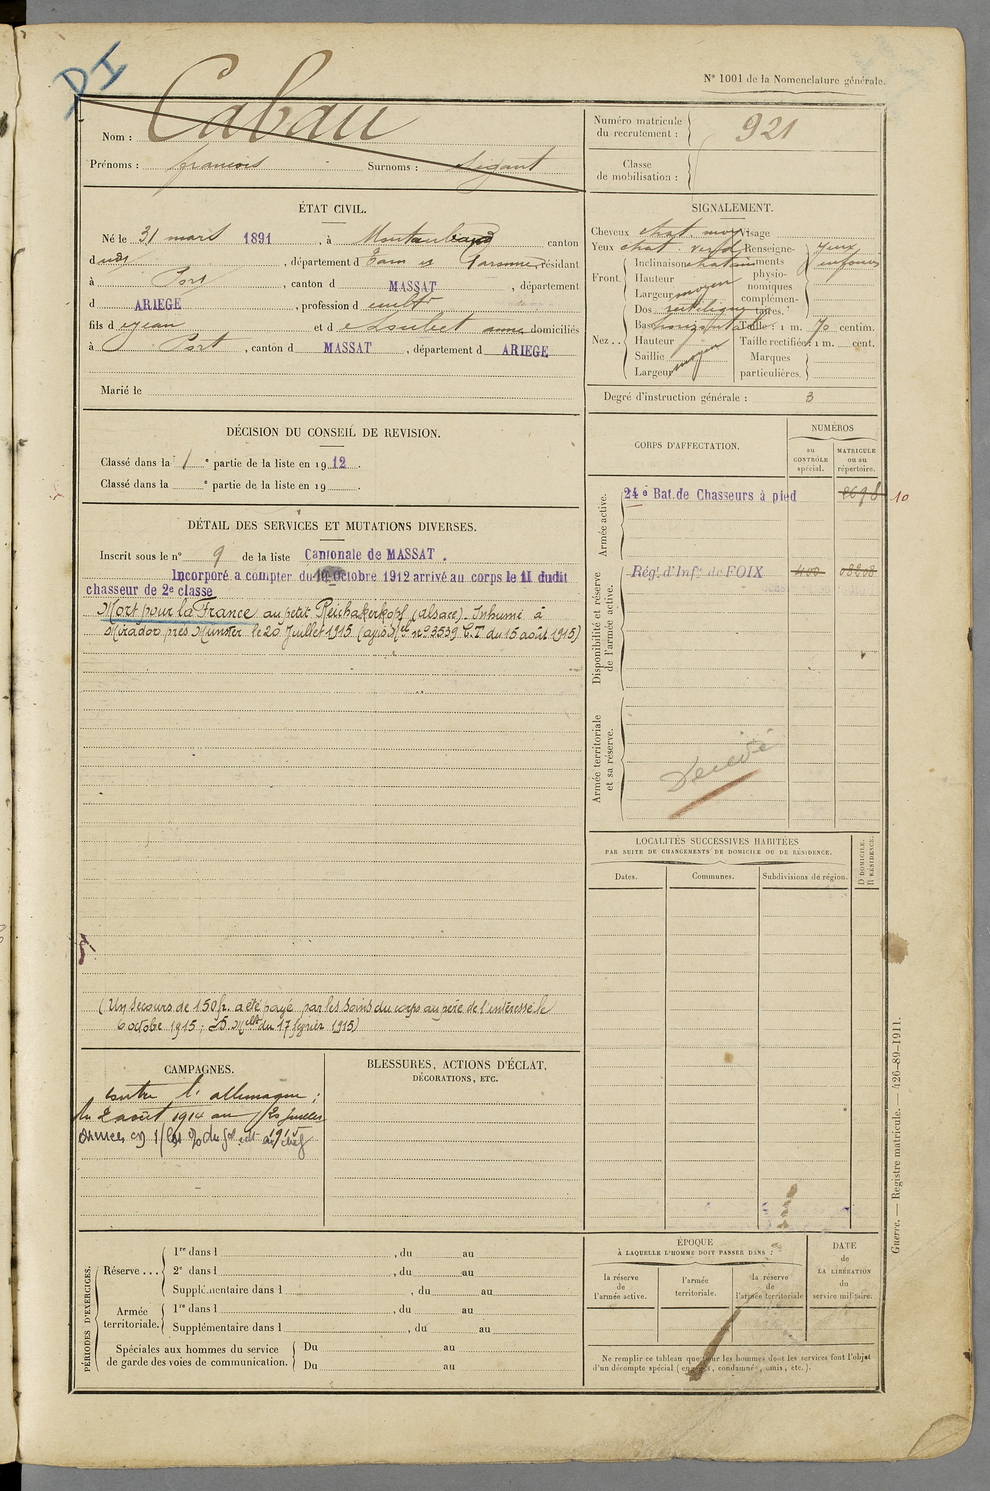 DI
N° 1001 de la Nomenclature générale.
Nom : Cabau
Prénoms : françois Surnoms : Sigaut
Numéro matricule du recrutement : 921
Classe de mobilisation :
ÉTAT CIVIL.
Né le 31 mars 1891, à Montauban canton
dudit, département d Tarn et Garonne, résidant
à Port, canton d MASSAT, département
d ARIEGE, profession d cultr
fils d e jean et d e Loubet anne domiciliés
à Port, canton d MASSAT, département d ARIEGE
Marié le
SIGNALEMENT.
Cheveux chat. moy Visage
Yeux chat. verd. Renseignements physionomiques complémentaires. yeux enfoncés
Front. Inclinaison
Hauteur
Largeur moyen
Nez.. Dos rectiligne
Base horizontale Taille : 1 m. 70 centim.
Hauteur Taille rectifiée : 1 m. cent.
Saillie Marques
Largeur moyen particulières.
Degré d'instruction générale : 3
DÉCISION DU CONSEIL DE REVISION.
Classé dans la 1e partie de la liste en 1912.
Classé dans la e partie de la liste en 19 .
DÉTAIL DES SERVICES ET MUTATIONS DIVERSES.
Inscrit sous le n° 9 de la liste Cantonale de MASSAT.
Incorporé a compter du 10 Octobre 1912 arrivé au corps le 11 dudit
chasseur de 2e classe
Mort pour la France au petit Reichakerkopf (alsace). Inhumé à
Mirador près Munster le 20 Juillet 1915 (avis Mel n° 93539 C.T. du 15 août 1915)
(Un secours de 150 fr. a été payé par les soins du corps au père de l'intéressé le
6 octobre 1915; D. Melle du 17 février 1915)
CORPS D'AFFECTATION.
NUMÉROS
au CONTRÔLE spécial.
MATRICULE ou au répertoire.
Armée active.
24e Bat. de Chasseurs à pied
10
Disponibilité et réserve de l'armée active.
Régt d'Infie de FOIX
Armée territoriale et sa réserve.
Décédé
LOCALITÉS SUCCESSIVES HABITÉES
PAR SUITE DE CHANGEMENTS DE DOMICILE OU DE RÉSIDENCE.
Dates. Communes. Subdivisions de région.
D. DOMICILE.
R. RÉSIDENCE.
CAMPAGNES.
Contre l'allemagne :
du 2 août 1914 au 20 juillet
1915
BLESSURES, ACTIONS D'ÉCLAT,
DÉCORATIONS, ETC.
PÉRIODES D'EXERCICES.
Réserve... 1re dans l , du au
2e dans l , du au
Supplémentaire dans l , du au
Armée territoriale. 1re dans l , du au
Supplémentaire dans l , du au
Spéciales aux hommes du service
de garde des voies de communication.
Du au
Du au
ÉPOQUE
À LAQUELLE L'HOMME DOIT PASSER DANS :
la réserve de l'armée active.
l'armée territoriale.
la réserve de l'armée territoriale
DATE de LA LIBÉRATION du service militaire.
Ne remplir ce tableau que pour les hommes dont les services font l'objet
d'un décompte spécial (engagés, condamnés, omis, etc.).
Guerre. — Registre matricule. — 426-89-1911.